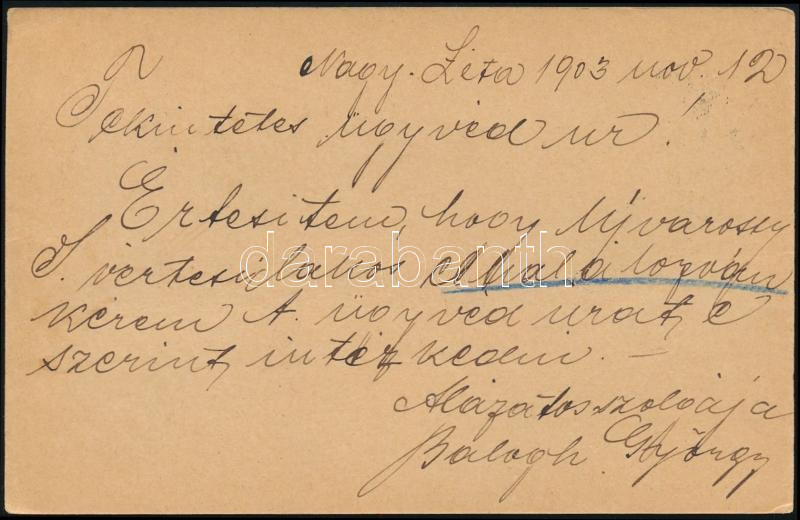 Nagy-Léta 1903 nov. 12
Tekintetes ügyvéd ur!
Értesitem, hogy Ujvárossy
S. vértesi lakos elhalálozván
kérem A. ügyvéd urat, e
szerint intézkedni. —
Alázatos szolgája
Balogh György
darabanth